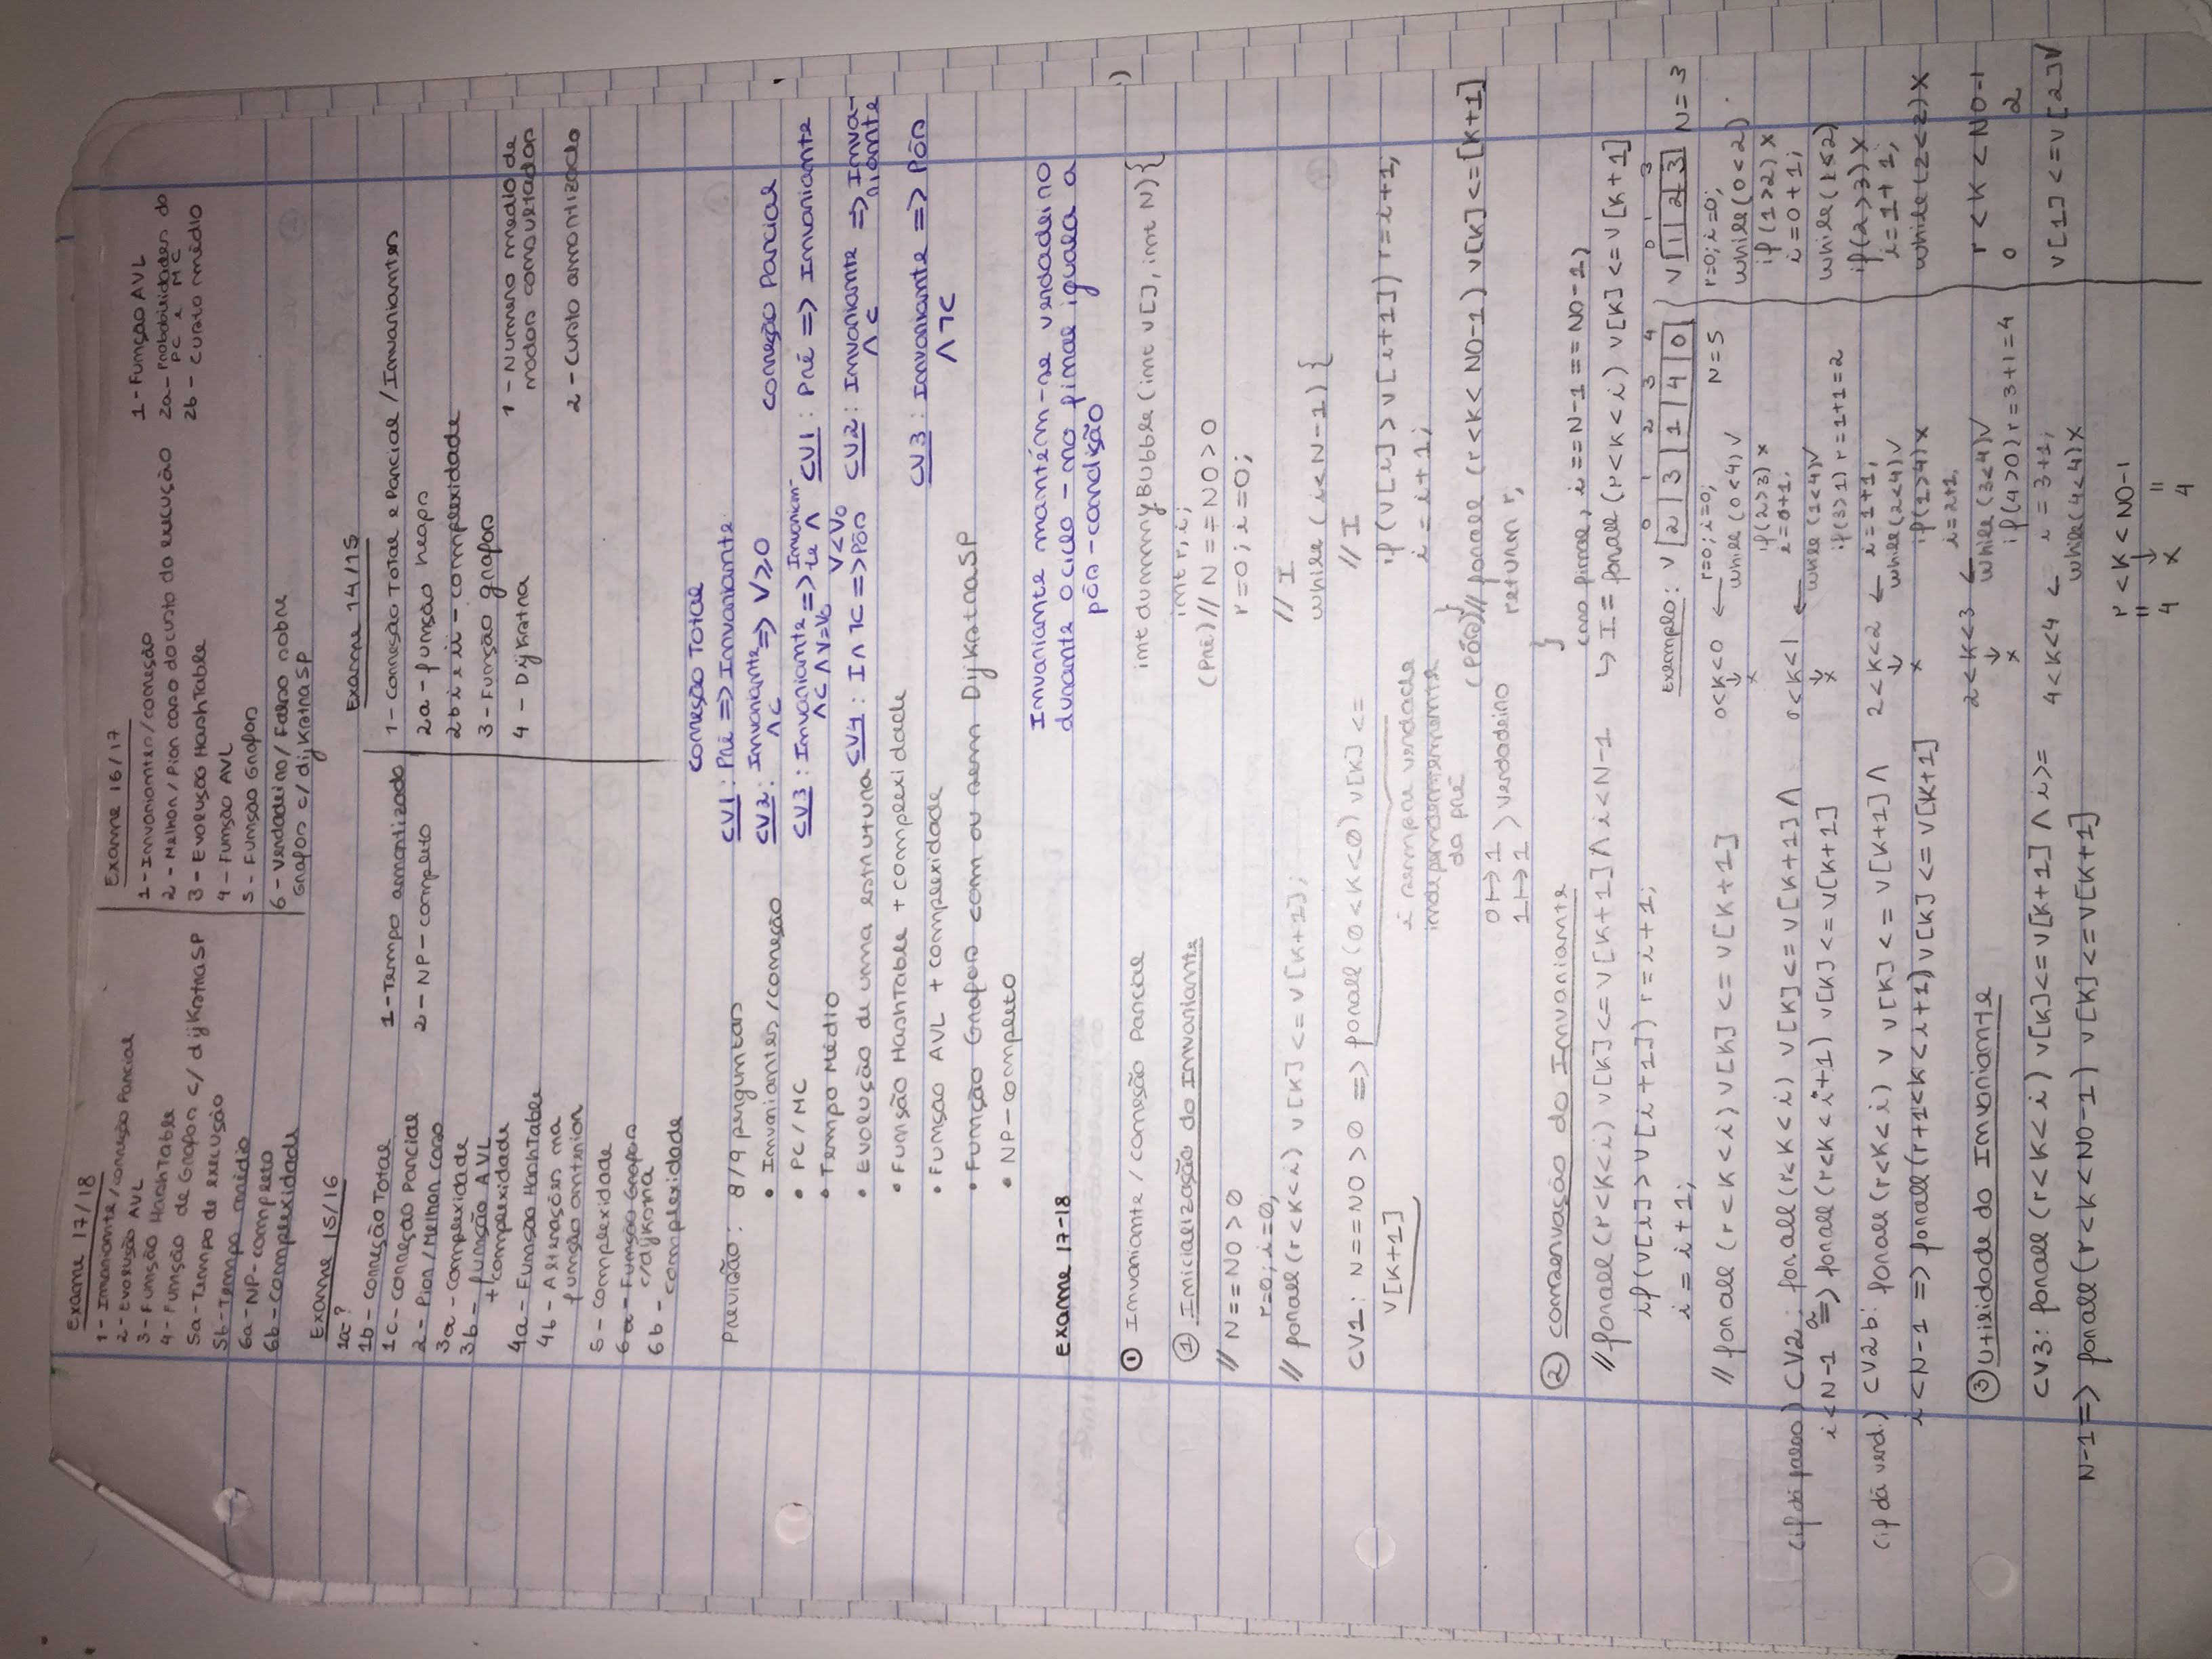 Exame 17/18
1- Invariante/correção Parcial
2- Evolução AVL
3- Função HashTable
4- Função de Grafos c/ dijkstraSP
5a- Tempo de execução
5b- Tempo médio
6a- NP-completo
6b- complexidade
Exame 16/17
1- Invariantes/correção
2- Melhor/Pior caso do custo da execução
3- Evolução HashTable
4- Função AVL
5- Função Grafos
6- Verdadeiro/Falso sobre
Grafos c/ dijkstraSP
1- Função AVL
2a- Probabilidades do
PC e MC
2b- Custo médio
Exame 15/16
1a- ?
1b- correção Total
1c- correção Parcial
2- Pior/Melhor caso
3a- complexidade
3b- função AVL
+ complexidade
4a- Função HashTable
4b- Alterações na
função anterior
5- complexidade
6a- Função Grafos
c/dijkstra
6b- complexidade
1-Tempo amortizado
2- NP-completo
Exame 14/15
1- Correção Total e Parcial/Invariantes
2a- função heaps
2b i e ii- complexidade
3- Função grafos
4- Dijkstra
1- Número médio de
nodos consultados
2- Custo amortizado
Previsão: 8/9 perguntas
• Invariantes/correção
• PC/MC
• Tempo Médio
• Evolução de uma estrutura
• Função HashTable + complexidade
• Função AVL + complexidade
• Função Grafos com ou sem DijkstraSP
• NP-completo
Correção Total
CV1: Pré => Invariante
CV2: Invariante ∧ C => V≥0
CV3: Invariante ∧ C ∧ V=V₀ => Invariante ∧ V<V₀
CV4: I ∧ ¬C => Pós
Correção Parcial
CV1: Pré => Invariante
CV2: Invariante ∧ C => Invariante
CV3: Invariante ∧ ¬C => Pós
Invariante mantém-se verdadeiro
durante o ciclo - no final iguala a
pós-condição
Exame 17-18
① Invariante/correção Parcial
① Inicialização do Invariante
// N==N0 > 0
r=0; i=0;
// forall (r<k<i) v[k] <= v[k+1];
CV1: N==N0 >0 => forall (0<k<0) v[k] <=
v[k+1]
é sempre verdade
independentemente
da pré
0↦1
1↦1
verdadeiro
② conservação do Invariante
// forall (r<k<i) v[k] <= v[k+1] ∧ i<N-1
if(v[i] > v[i+1]) r=i+1;
i = i+1;
// forall (r<k<i) v[k] <= v[k+1]
(if dá falso) CV2a: forall (r<k<i) v[k] <= v[k+1] ∧
i<N-1 => forall (r<k<i+1) v[k] <= v[k+1]
(if dá verd.) CV2b: forall (r<k<i) v v[k] <= v[k+1] ∧
i<N-1 => forall (r+1<k<i+1) v[k] <= v[k+1]
③ Utilidade do Invariante
CV3: forall (r<k<i) v[k]<=v[k+1] ∧ i>=
N-1 => forall (r<k<N0-1) v[k]<=v[k+1]
int dummyBubble (int v[], int N) {
int r, i;
(Pré) // N == N0 > 0
r=0; i=0;
// I
while (i<N-1) {
// I
if (v[i] > v[i+1]) r=i+1;
i = i+1;
}
(Pós) // forall (r<k<N0-1) v[k]<=[k+1]
return r;
}
(no final, i==N-1==N0-1)
↳ I = forall (r<k<i) v[k] <= v[k+1]
0 1 2 3 4
Exemplo: v 2 3 1 4 0
N=5
0<k<0 ← r=0; i=0;
↓
x
while (0<4) ✓
if(2>3) x
0<k<1 ← i=0+1;
↓
x
while (1<4) ✓
if(3>1) r=1+1=2
2<k<2 ← i=1+1;
↓
x
while(2<4) ✓
if(1>4) x
2<k<3 ← i=2+1;
↓
x
while (3<4) ✓
if(4>0) r=3+1=4
4<k<4 ← i = 3+1;
while(4<4) x
r < k < N0-1
4 x 4
0 1 3
v 1 2 3 N=3
r=0; i=0;
while(0<2)
if(1>2) x
i=0+1;
while(1<2)
if(2>3) x
i=1+1;
while(2<2) x
r < k < N0-1
0 2
v[1] <= v[2] ✓